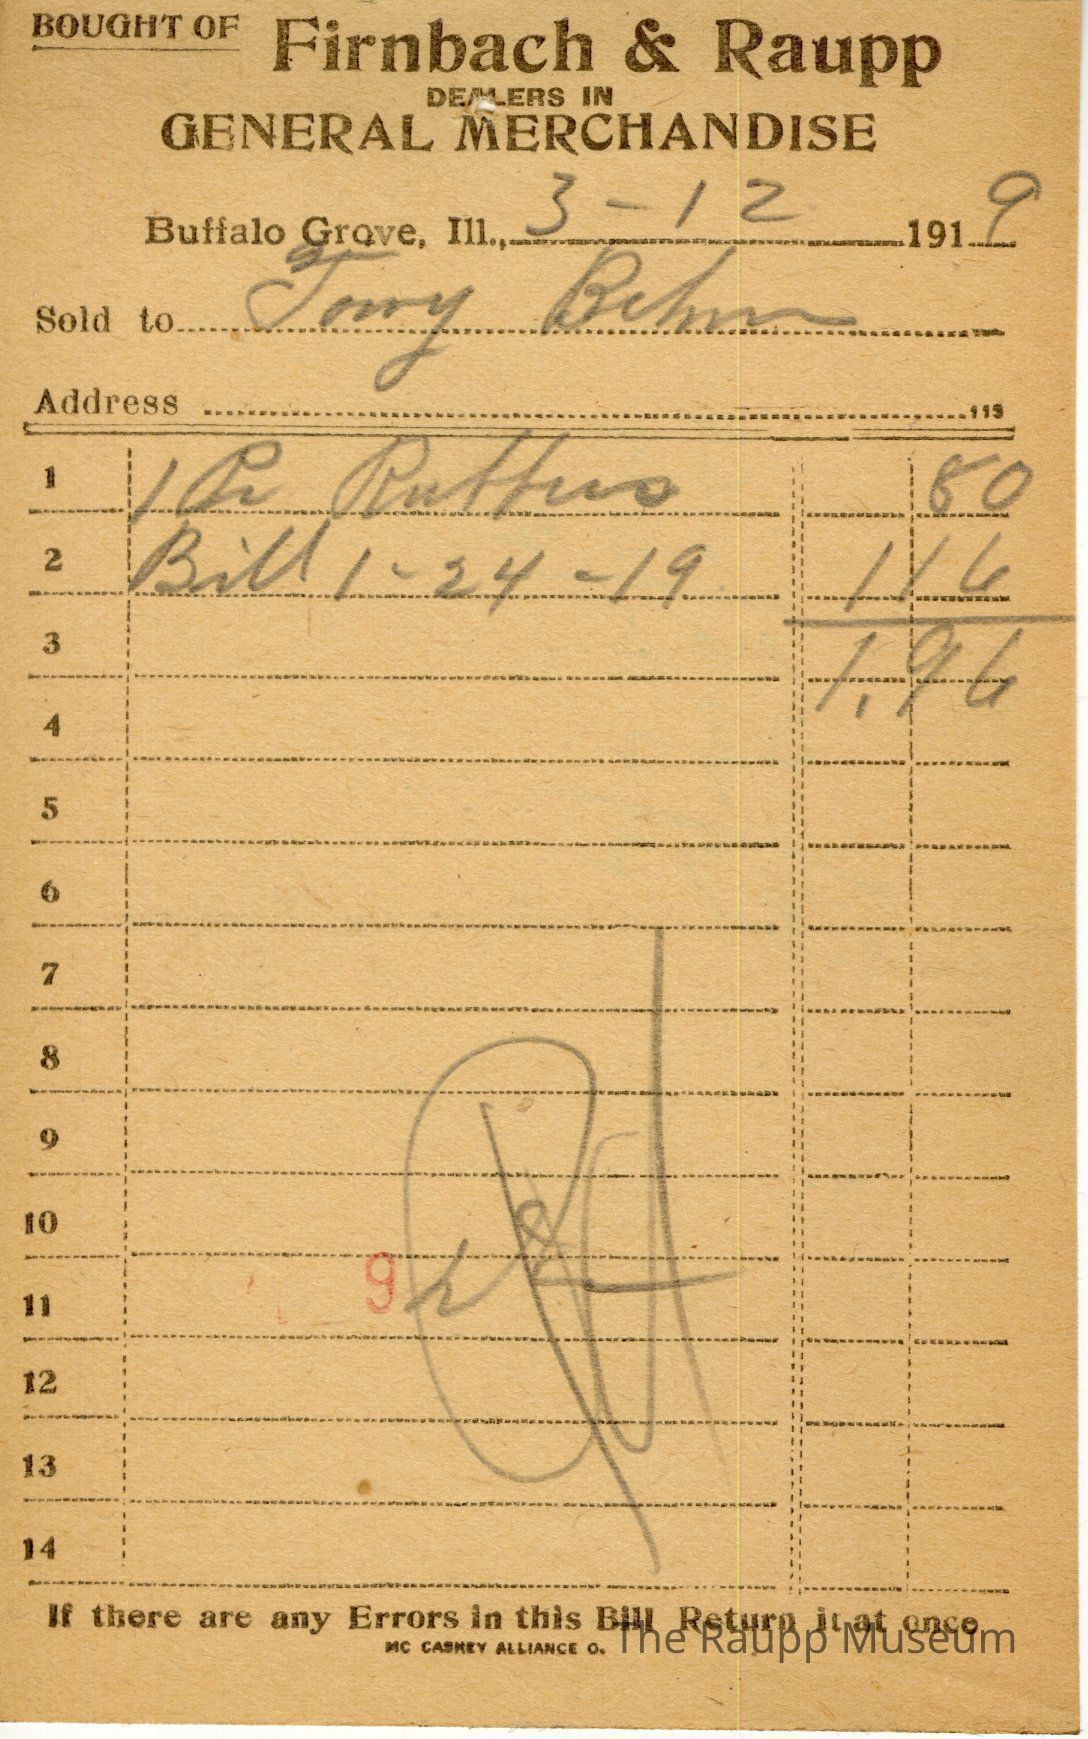 BOUGHT OF Firnbach & Raupp
DEALERS IN
GENERAL MERCHANDISE
Buffalo Grove, Ill., 3-12 1919
Sold to Tony Behm
Address 113
1 1 Pr Rubbers 80
2 Bill 1-24-19 116
3 1.96
4
5
6
7
8
9
10
9
11
12
13
14
If there are any Errors in this Bill Return it at once
MC CASKEY ALLIANCE O.
The Raupp Museum